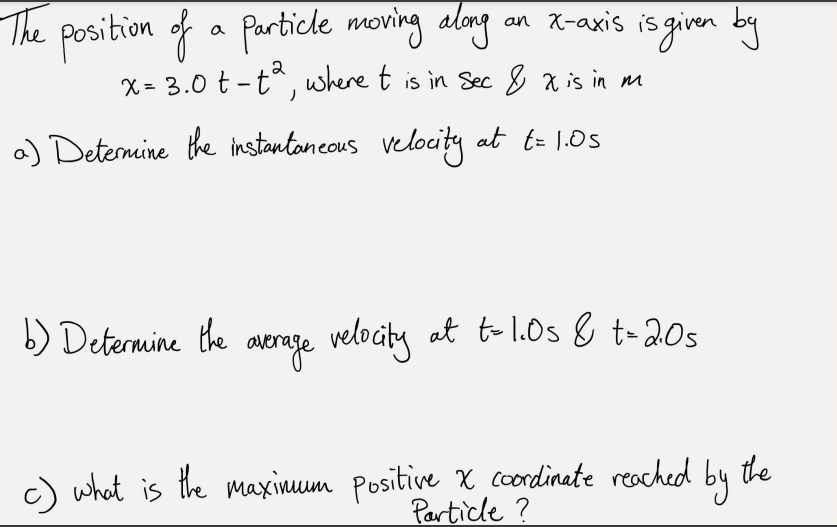 The position of a Particle moving along an x-axis is given by
x = 3.0 t - t², where t is in sec & x is in m
a) Determine the instantaneous velocity at t= 1.0s
b) Determine the average velocity at t= 1.0s & t= 2.0s
c) what is the maximum positive x coordinate reached by the
Particle ?